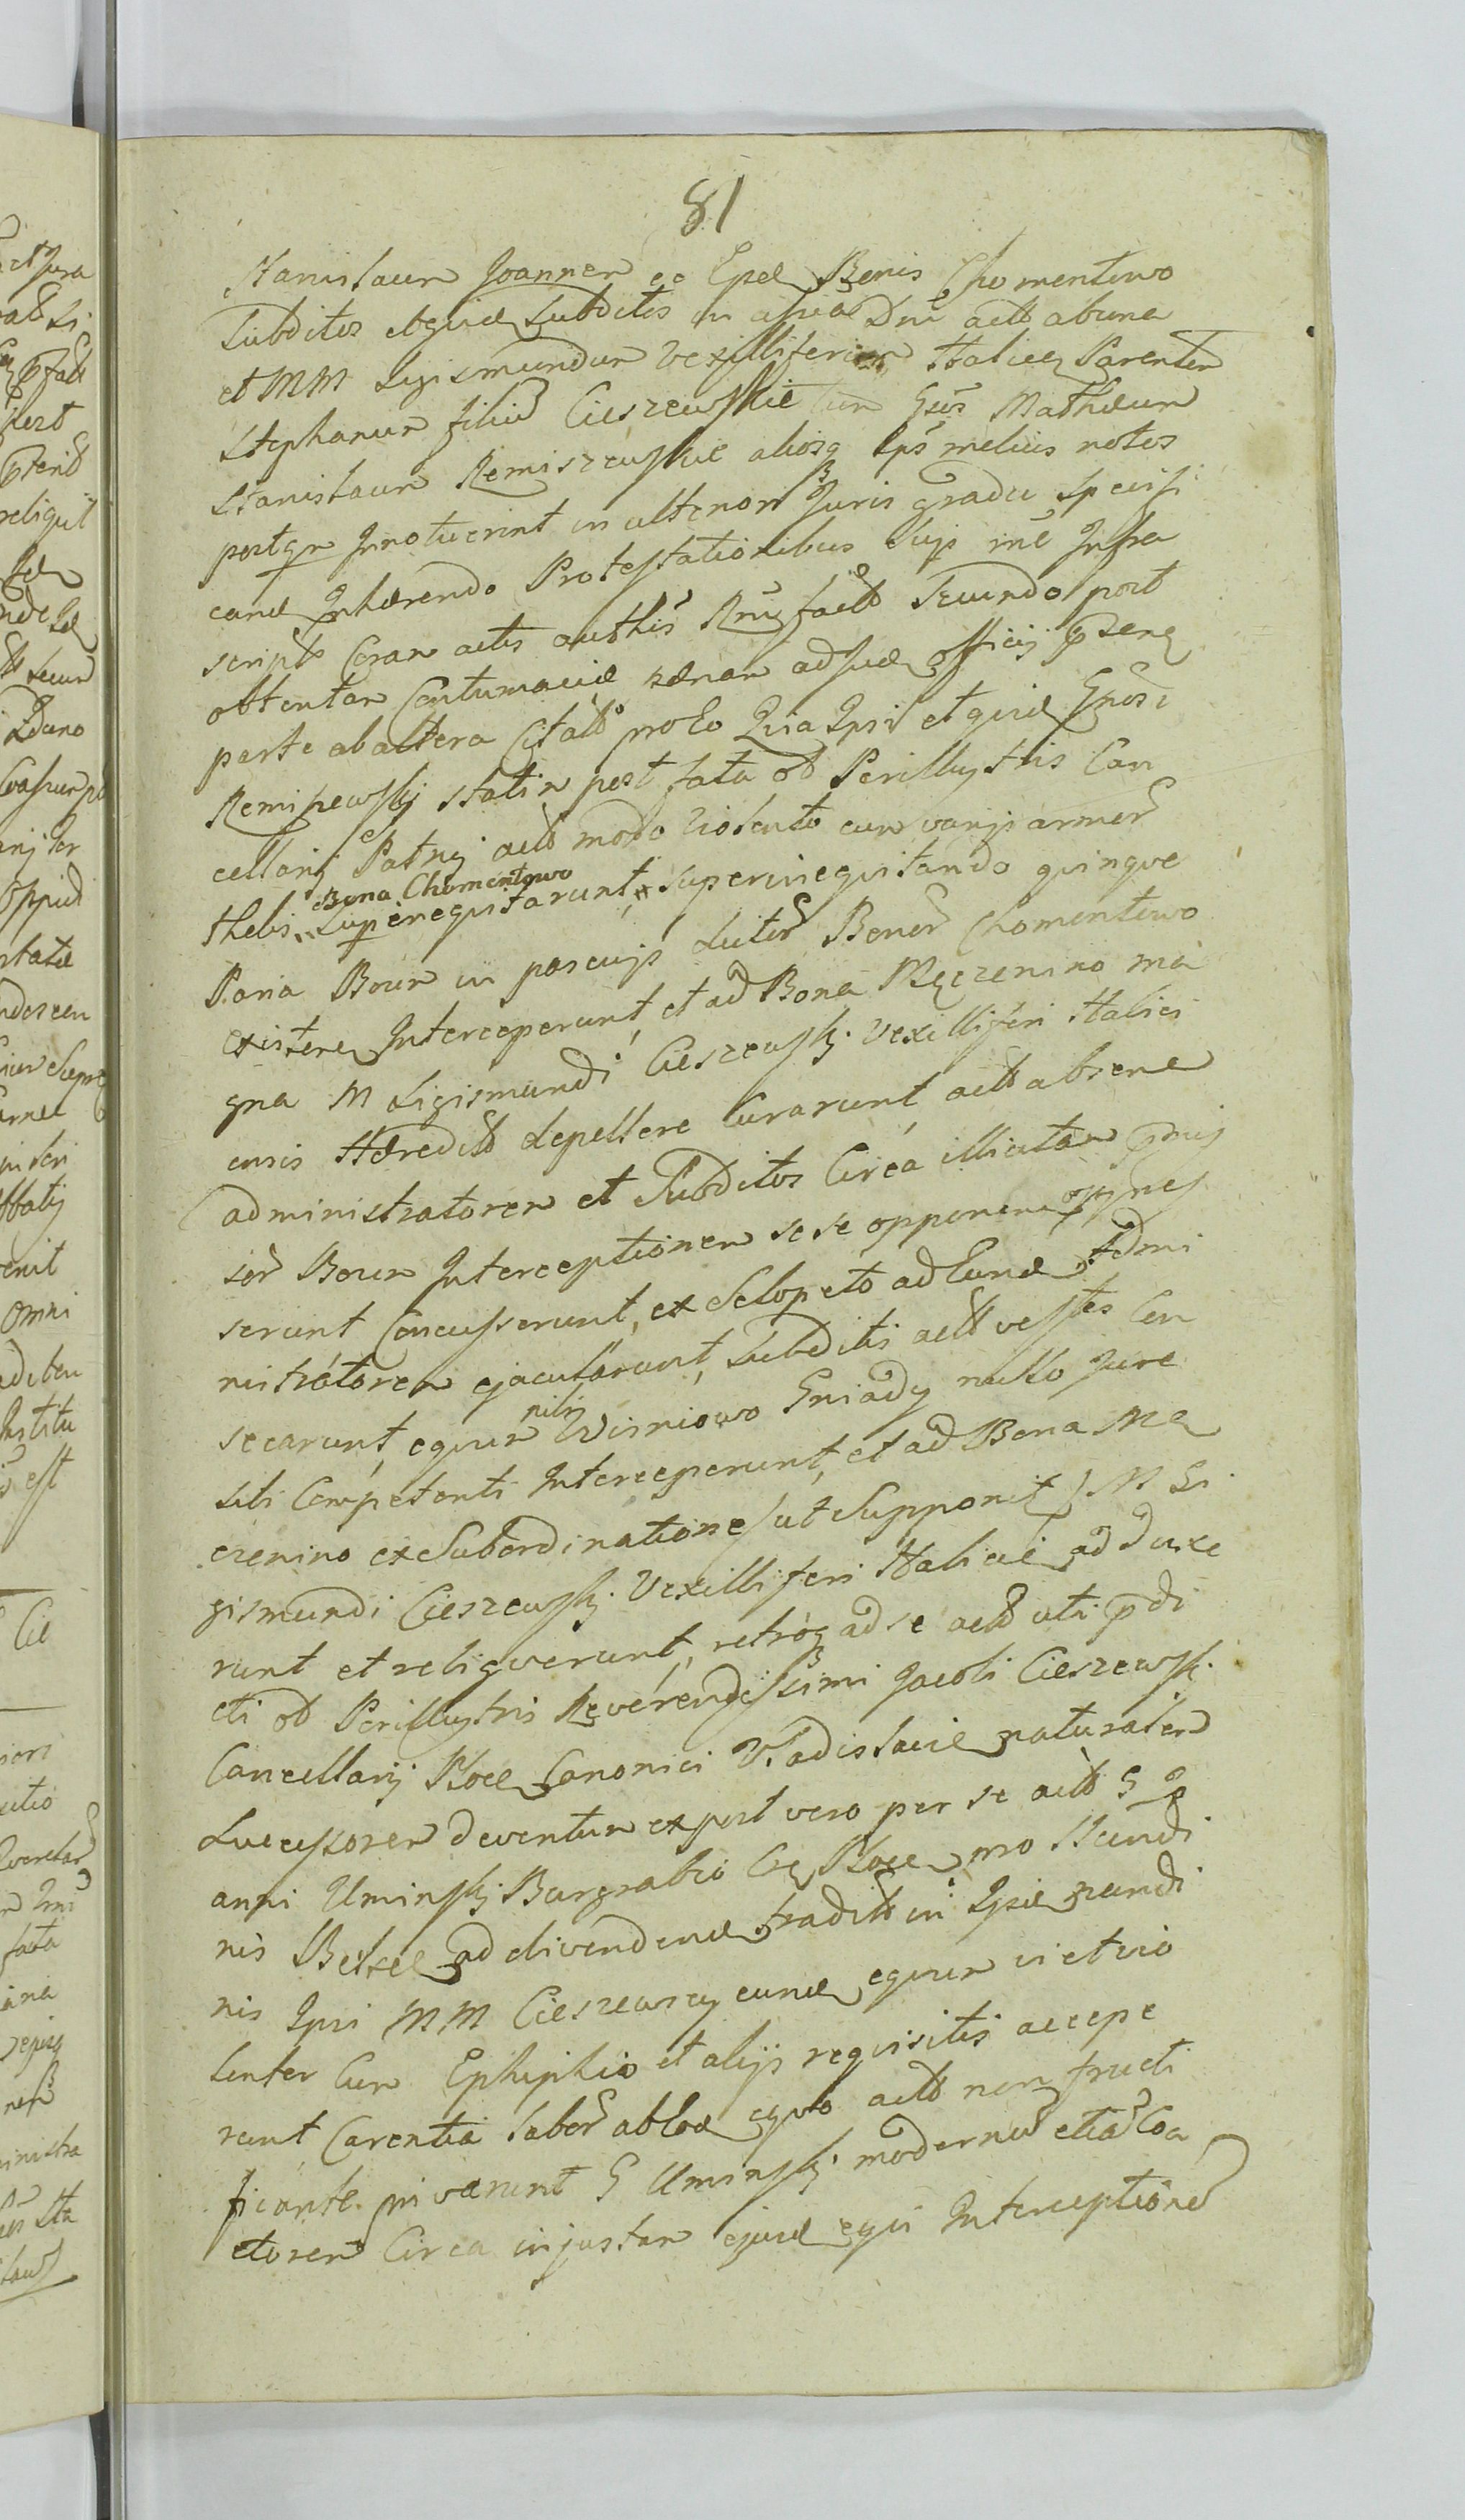 81
Stanislaum Joannem ec Epd Bonis Chomentowo
Subditos eorgve Subditis in asva Dni acto abunee
et MM Sigismundum Vexilliferum Halicz Parentem
Stephanum filium Cieszewskie tum Gsos Mathæum
Stanislaum Remiszewskie aliosq Ips melius notos
postqm Innotuerint in ulteriori Juris gradu specifi
cand Inhærendo Protestationibus suis inē Infra
scripto Coram actis authis Rnis factis Secundo post
obtentam Contumaciæ pænam ad Jud officij psene
parte ab altera Citatis pro Eo Quia Ipsi et gsie Gnosi
Remiszewskj statim post fata od Perillustris Can
cellarij Patruj acto modo violento cum varijs armor
thelis Bona Chomentowo superequitarunt, superinequitando quinque
Paria Boum in pascujs dictor Bonor Chomentowo
existen Interceperunt, et ad Bona Męczenino ma
gna M Sigismundi Cieszewskj Vexilliferi Halici
ensis Hæredit depellere Curarunt, acto absene
administratorem et Subditos Circa illicitam pmis
sor Boum Interceptionem sese opponen
serunt Concusserunt, ex Sclopeto ad Eund Admi
nistratorem ejacularunt, Subditis acto vestes Con
secarunt, equum pili Wisniowo Gniady nullo Jure
sibi Competenti Interceperunt, et ad Bona Mę
czenino ex Subordinatione (ut Supponit) M Si
gismundi Cieszewskj Vexilliferi Halicie adduxe
runt et reliquerunt, retroq ad se acto uti pdi
cti od Perillustris Reverendissimi Jacobi Cieszewskj
Cancellarij Ploce Canonici Vladislavie naturalem
Successorem deventum expost vero per se acto G Jo
anni Uminskj Burgrabio Cas Ploce pro Nundi
nis Belsce ad divendend tradito in Ipsis nundi
nis Ipsi MM Cieszewscy eund equum vi et vio
lenter Cum Ephiphio et alijs requisitis accepe
runt Carentia labor ablod equo acto non fructi
ficante privarunt G Uminskj modernum etiā Coa
ctorem Circa injustam ejusd equi Interceptionem